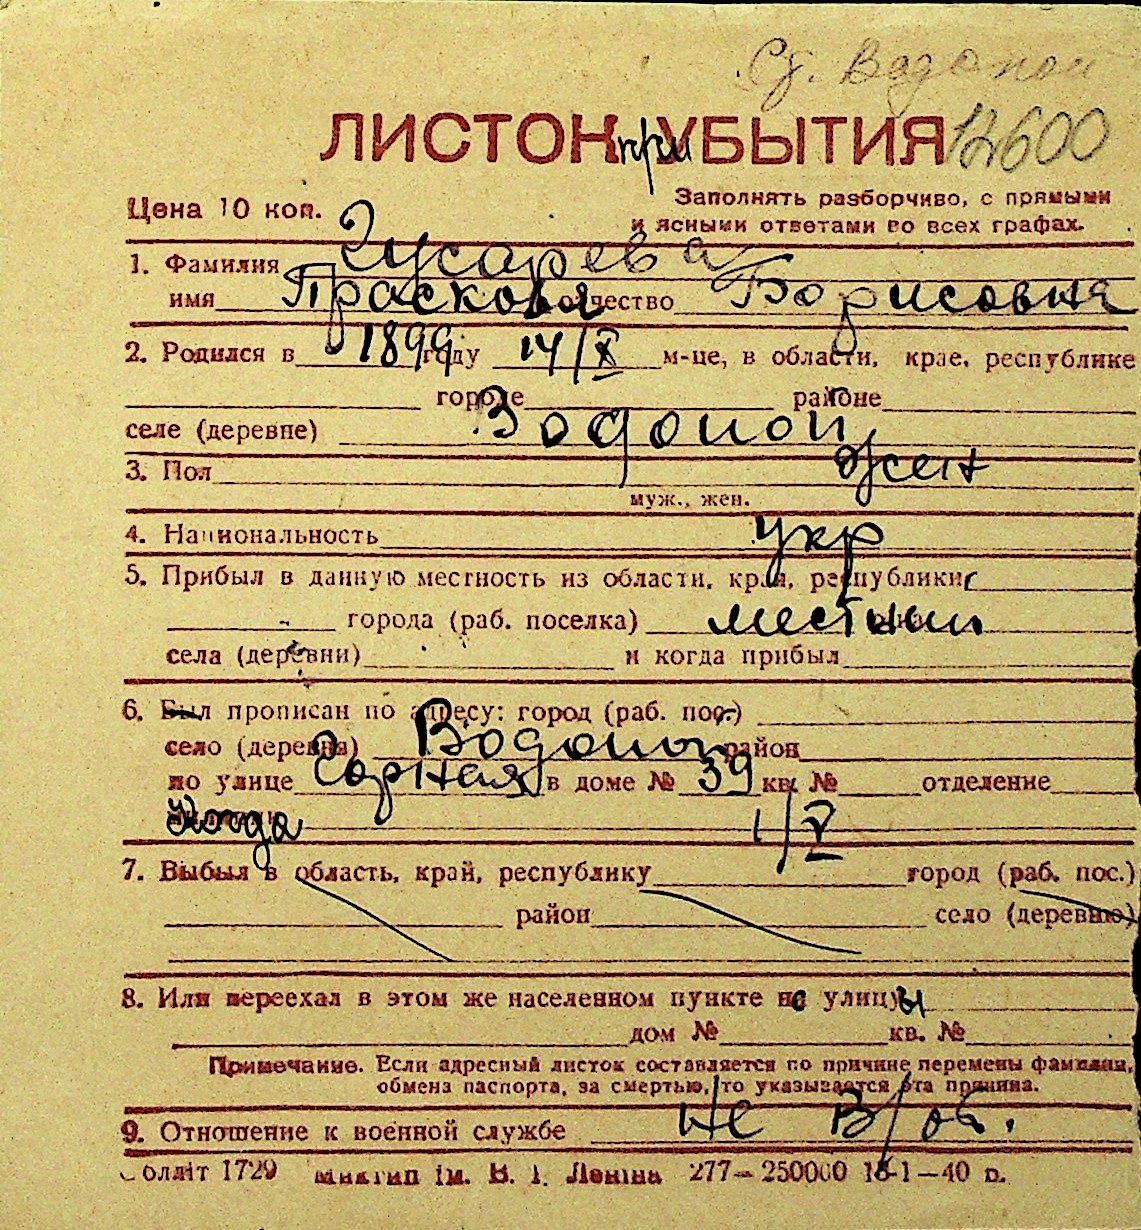 Ст. Водопой
ЛИСТОК при УБЫТИЯ 12600
Цена 10 коп.
Заполнять разборчиво, с прямыми
и ясными ответами во всех графах.
1. Фамилия Гусарева
имя Прасковья отчество Борисовна
2. Родился в 1899 году 14/X м-це, в области, крае, республике
городе районе
селе (деревне) Водопой
3. Пол жен
муж., жен.
4. Национальность укр
5. Прибыл в данную местность из области, края, республики
города (раб. поселка) местный
села (деревни) и когда прибыл
6. Был прописан по адресу: город (раб. пос.)
село (деревня) Водопой район
по улице Горная в доме № 39 кв. № отделение
Когда 1/V
7. Выбыл в область, край, республику город (раб. пос.)
район село (деревню)
8. Или переехал в этом же населенном пункте с улицы
дом № кв. №
Примечание. Если адресный листок составляется по причине перемены фамилии,
обмена паспорта, за смертью, то указывается эта причина.
9. Отношение к военной службе не в/об.
Облліт 1729 ім. В. І. Леніна 277—250000 18-1—40 р.